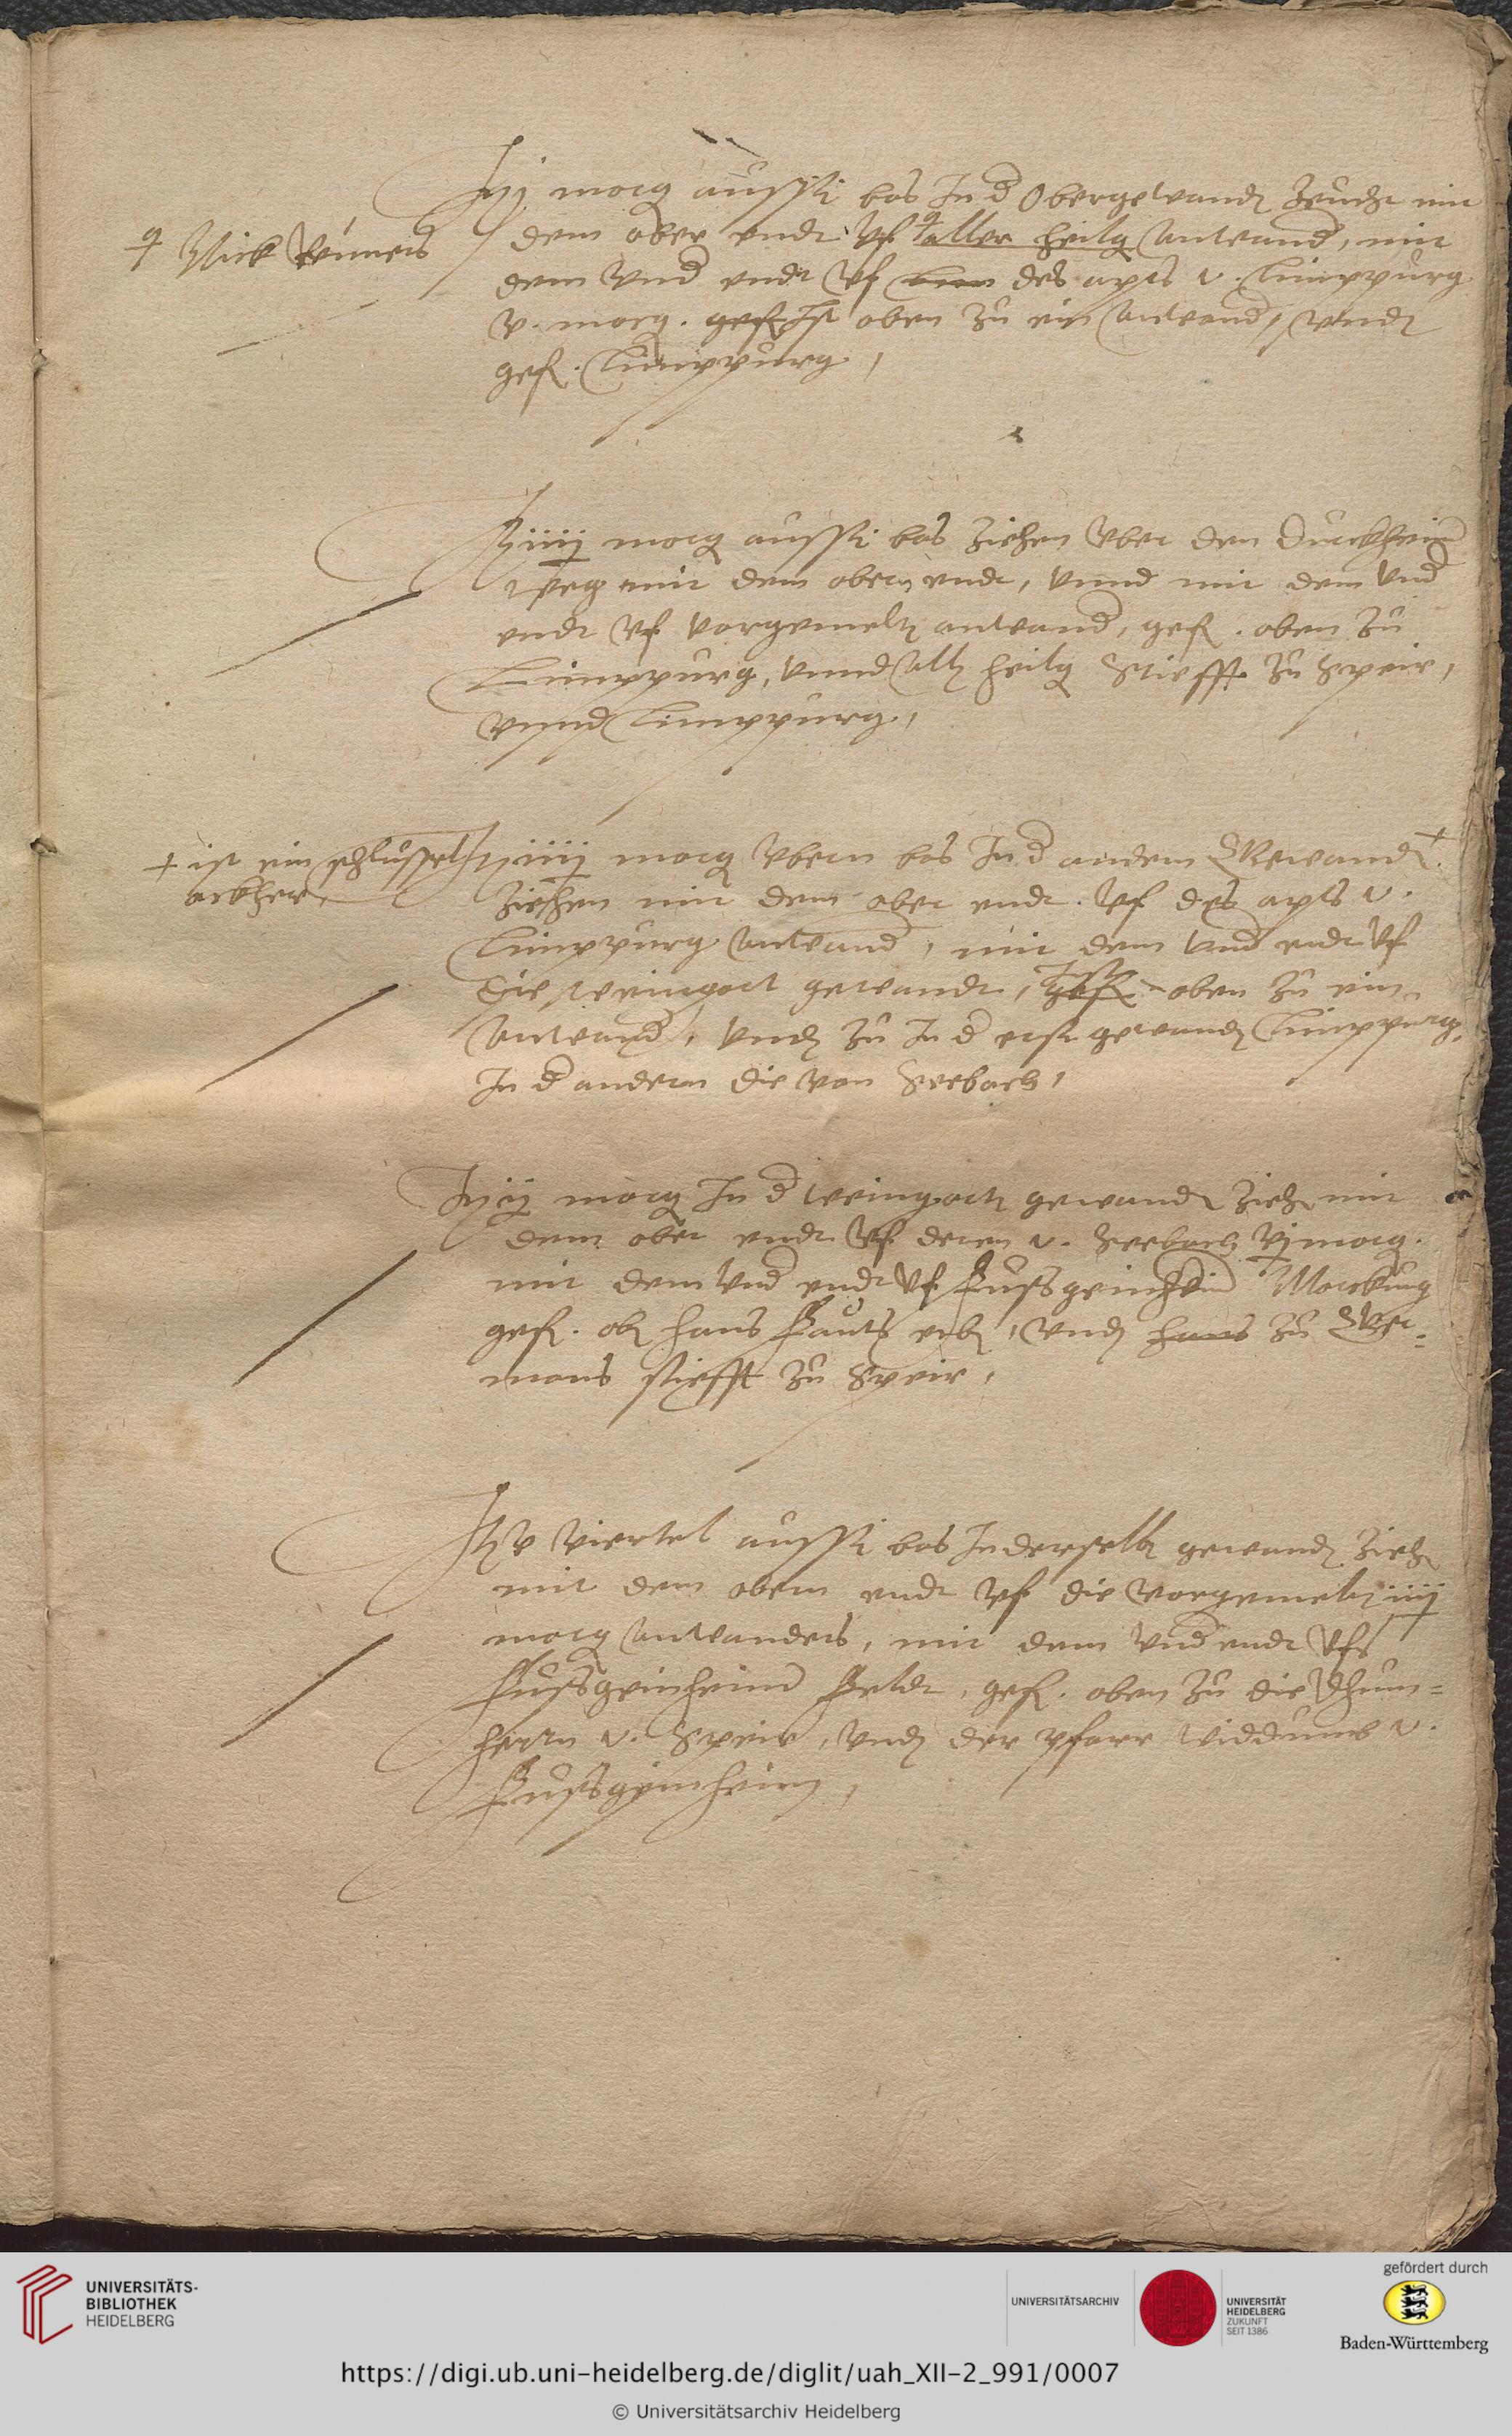 It ij morg aussi bas In d Obergewandt Zeucht mit
+ Nick Reiners
dem ober endt Vf aller heilg Anwand, mit
dem Vnd endt Vf des apts v. Limppurg
v. morg. gefh Ist oben zu ein Anwand, Vndt
gefh. Limppurg,
It iiij morg aussi bas Ziehen Vber den Durckheim
weg mit dem obern endt, Vnnd mit dem Vnd
endt Vf Vorgemelt anwand, gefh. oben zu
Limppurg, Vnnd All heilg Stiefft zu Speir,
Vnnd Limppurg,
+ ist ein schlüssel
ackher
It iiij morg Vbern bas In d andern Gewandt +
Ziehen mit dem ober endt. Vf des apts v.
Limppurg Anwand, mit dem Vnd endt Vf
die weingart gewandt, gefh Ist oben zu ein
Anwand, Vnd zu In d erst gewandt Limppurg,
In d andern die von Seebach,
It iij morg In d weingart gewandt Zieh mit
dem ober endt Vf deren v. Seebach vj morg.
mit dem Vnd endt Vf Fussgeinheim Marckung
gefh. ob hans Fauts erb, Vnd hans zu Ger-
mans stiefft zu Speir,
It v Viertel aussi bas In derselb gewandt Zieh
mit dem obern endt Vf die Vorgemelt iiij
morg Anwanders, mit dem Vnd endt Vfs
Fussgeinheimer Feldt, gefh. oben zu die Thum-
herrn v. Speir, Vnd der pfarr widdumb v.
Fussgeinheim,
UNIVERSITÄTS-
BIBLIOTHEK
HEIDELBERG
UNIVERSITÄTSARCHIV
UNIVERSITÄT
HEIDELBERG
ZUKUNFT
SEIT 1386
gefördert durch
Baden-Württemberg
https://digi.ub.uni-heidelberg.de/diglit/uah_XII-2_991/0007
© Universitätsarchiv Heidelberg